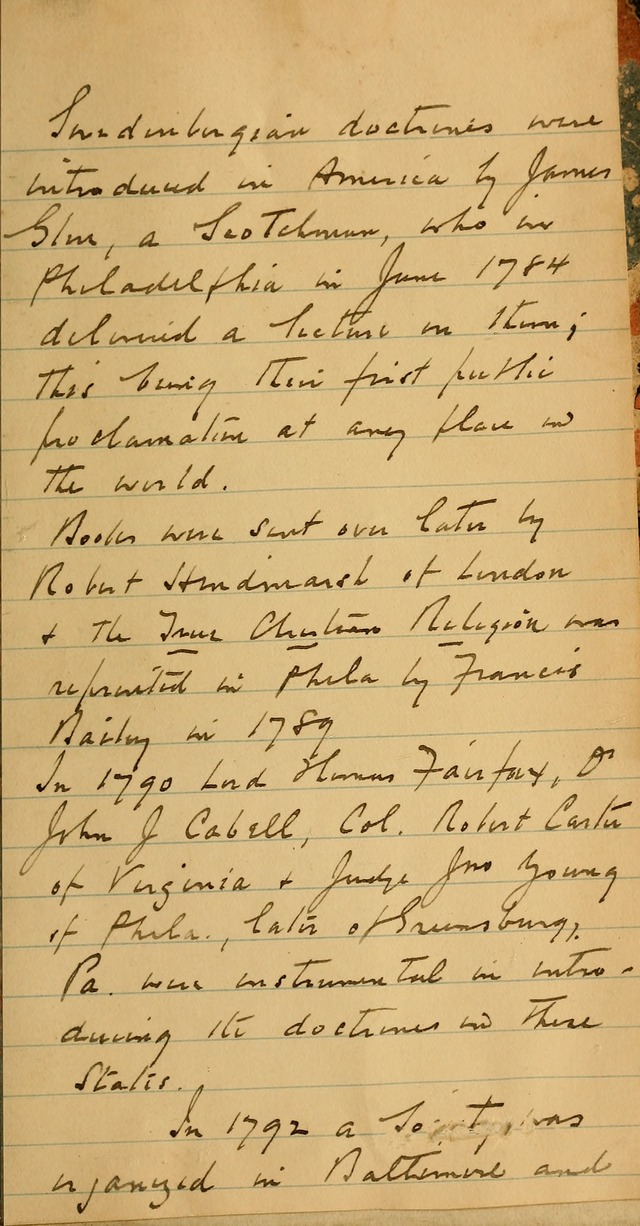 Swedenborgian doctrines were
introduced in America by James
Glen, a Scotchman, who in
Philadelphia in June 1784
delivered a lecture on them;
this being their first public
proclamation at any place in
the world.
Books were sent over later by
Robert Hindmarsh of London
& the True Christian Religion was
reprinted in Phila by Francis
Bailey in 1789
In 1790 Lord Thomas Fairfax, Dr
John J Cabell, Col. Robert Carter
of Virginia & Judge Jno Young
of Phila., later of Greensburg,
Pa. were instrumental in intro-
ducing the doctrines in these
States.
In 1792 a Society was
organized in Baltimore and